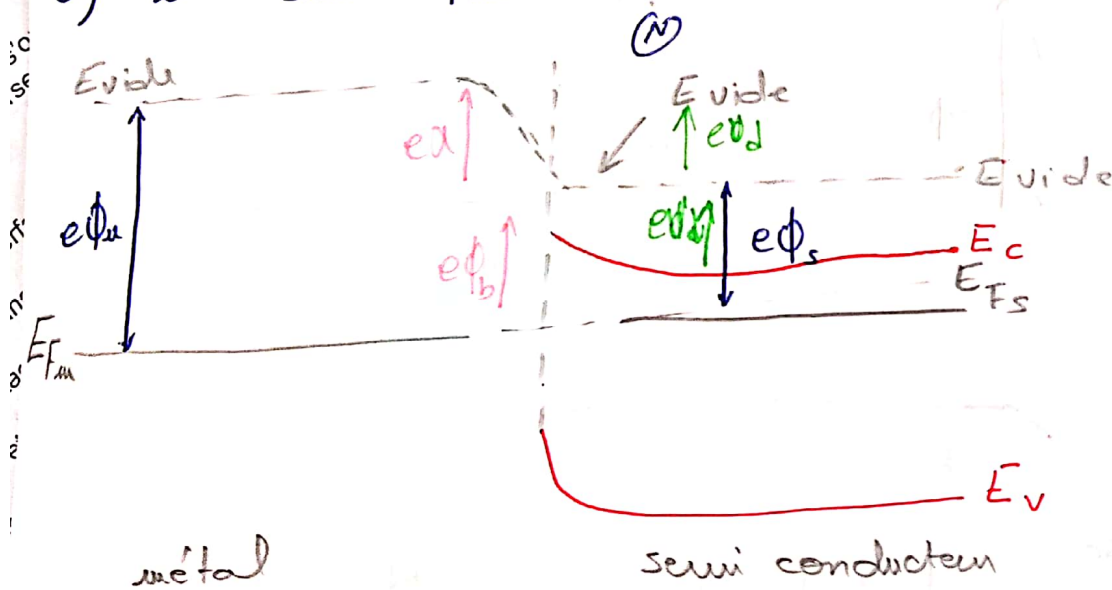 N
Evide
E vide
eVd
eχ
E vide
eϕs
eϕb
Ec
EFs
EFm
Ev
métal
semi conducteur